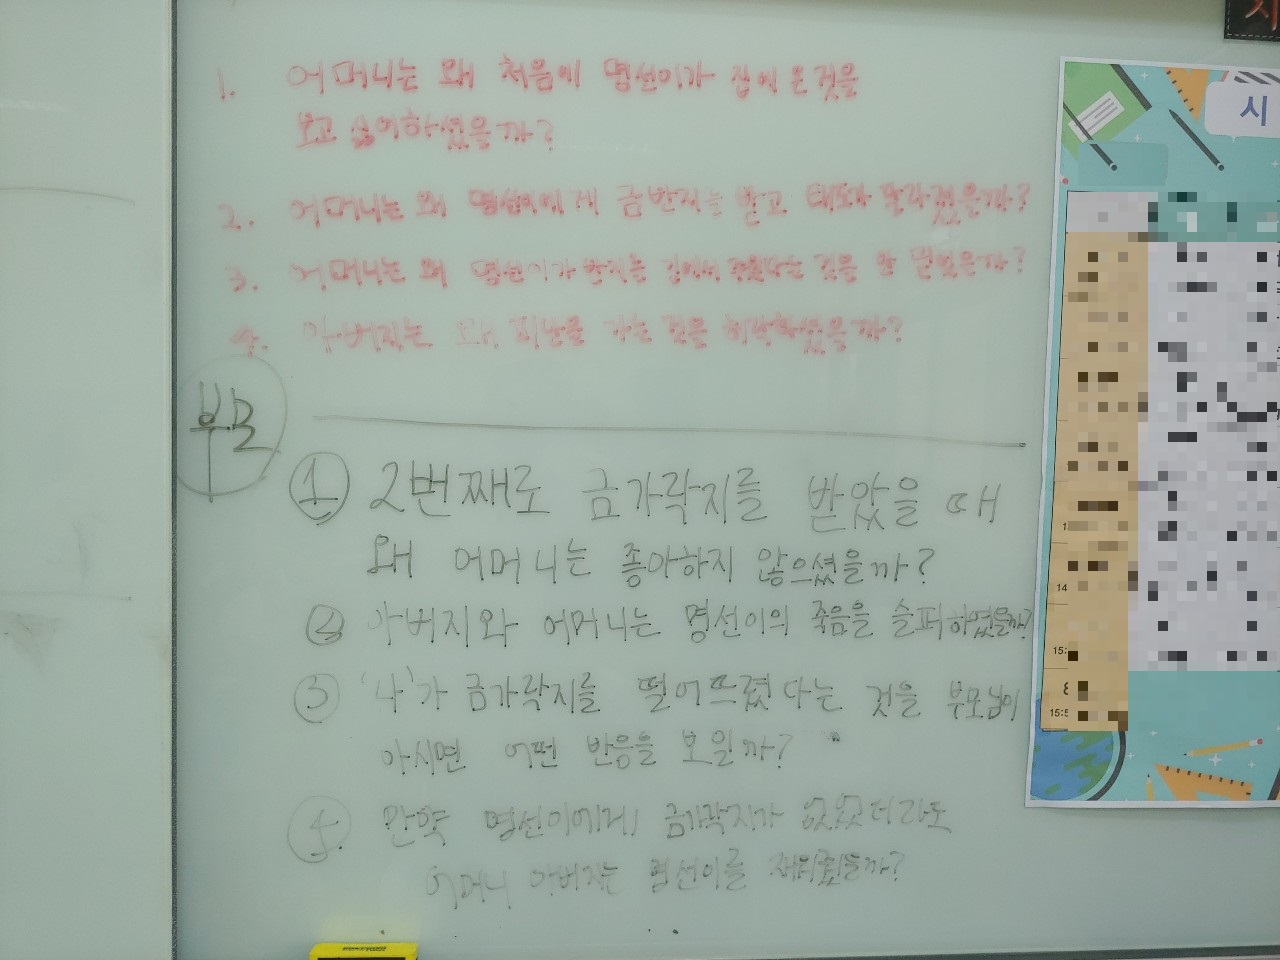 1. 어머니는 왜 처음에 명선이가 집에 온것을
보고 싫어하셨을까?
2. 어머니는 왜 명선이에게 금반지를 받고 태도가 달라졌을까?
3. 어머니는 왜 명선이가 반지를 길에서 주웠다는 것을 안 믿었을까?
4. 아버지는 왜 피난을 가는 것을 허락하셨을까?
부모
① 2번째로 금가락지를 받았을 때
왜 어머니는 좋아하지 않으셨을까?
② 아버지와 어머니는 명선이의 죽음을 슬퍼하였을까?
③ '나'가 금가락지를 떨어뜨렸다는 것을 부모님이
아시면 어떤 반응을 보일까?
④ 만약 명선이에게 금가락지가 없었더라도
어머니 아버지는 명선이를 재워줬을까?
시
14
15:
8
15:5